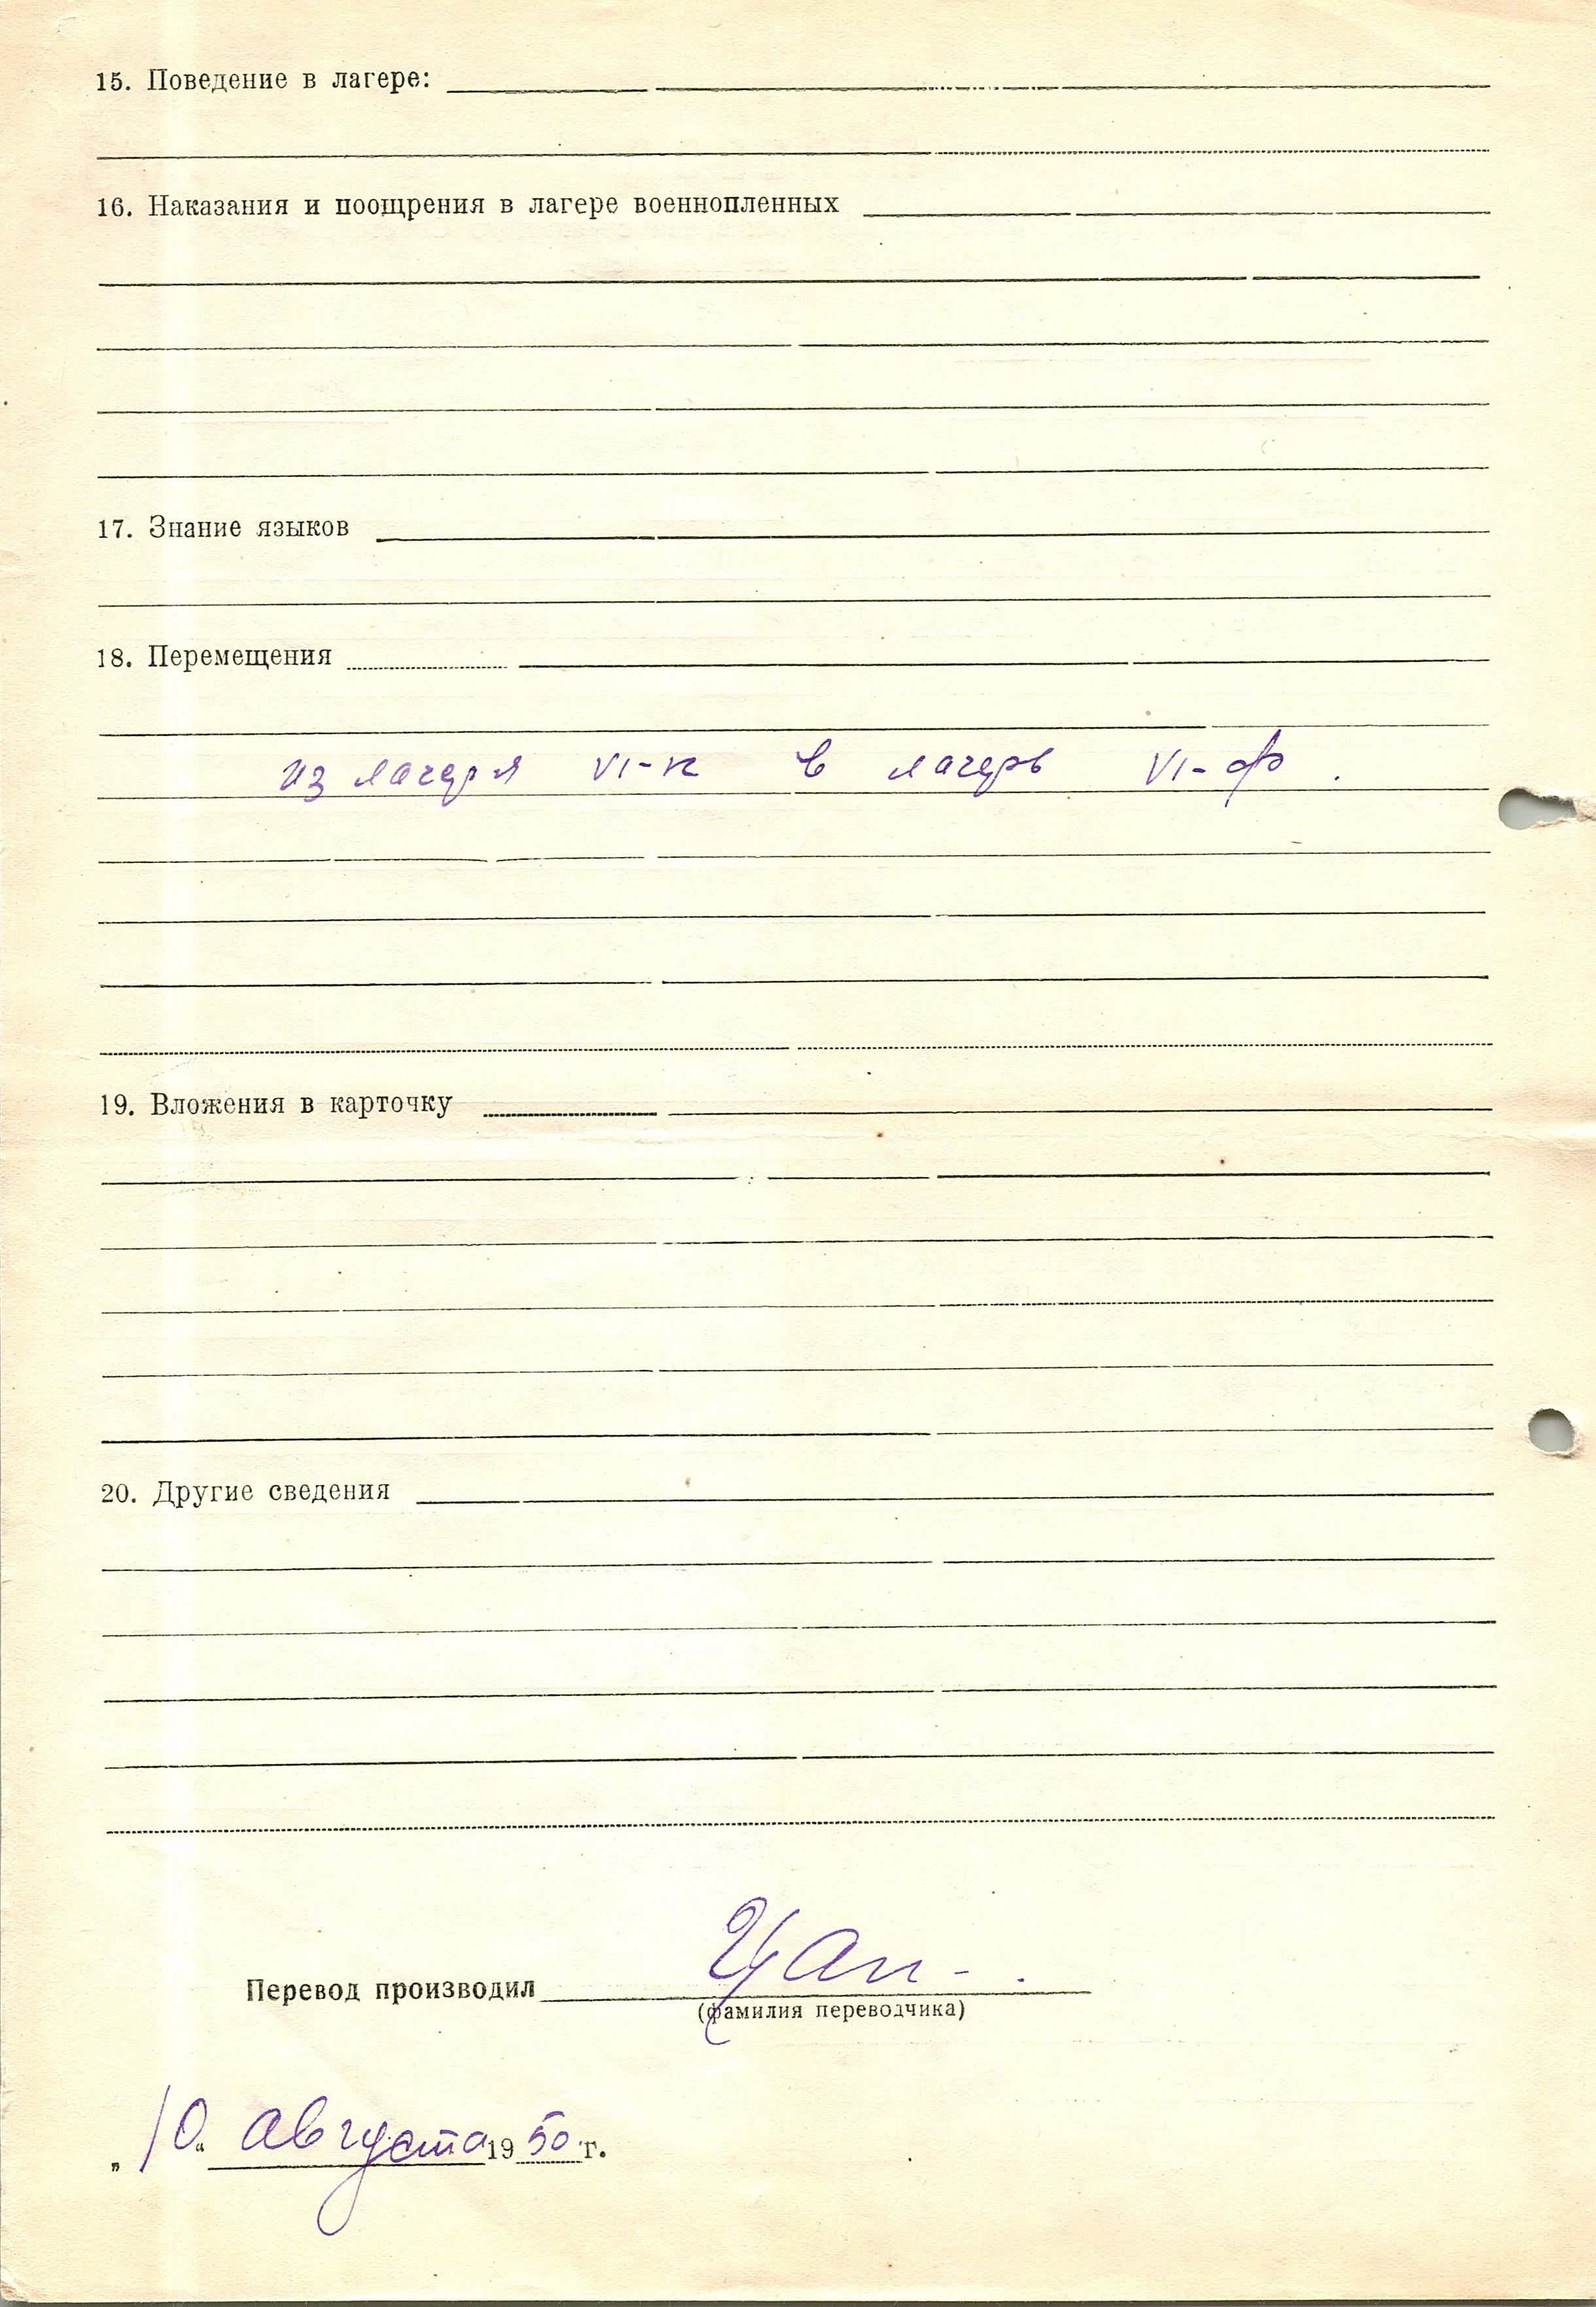 15. Поведение в лагере:
16. Наказания и поощрения в лагере военнопленных
17. Знание языков
18. Перемещения
из лагеря VI-к в лагерь VI-ф.
19. Вложения в карточку
20. Другие сведения
Перевод производил Цап-.
(фамилия переводчика)
„10“ августа 1950 г.